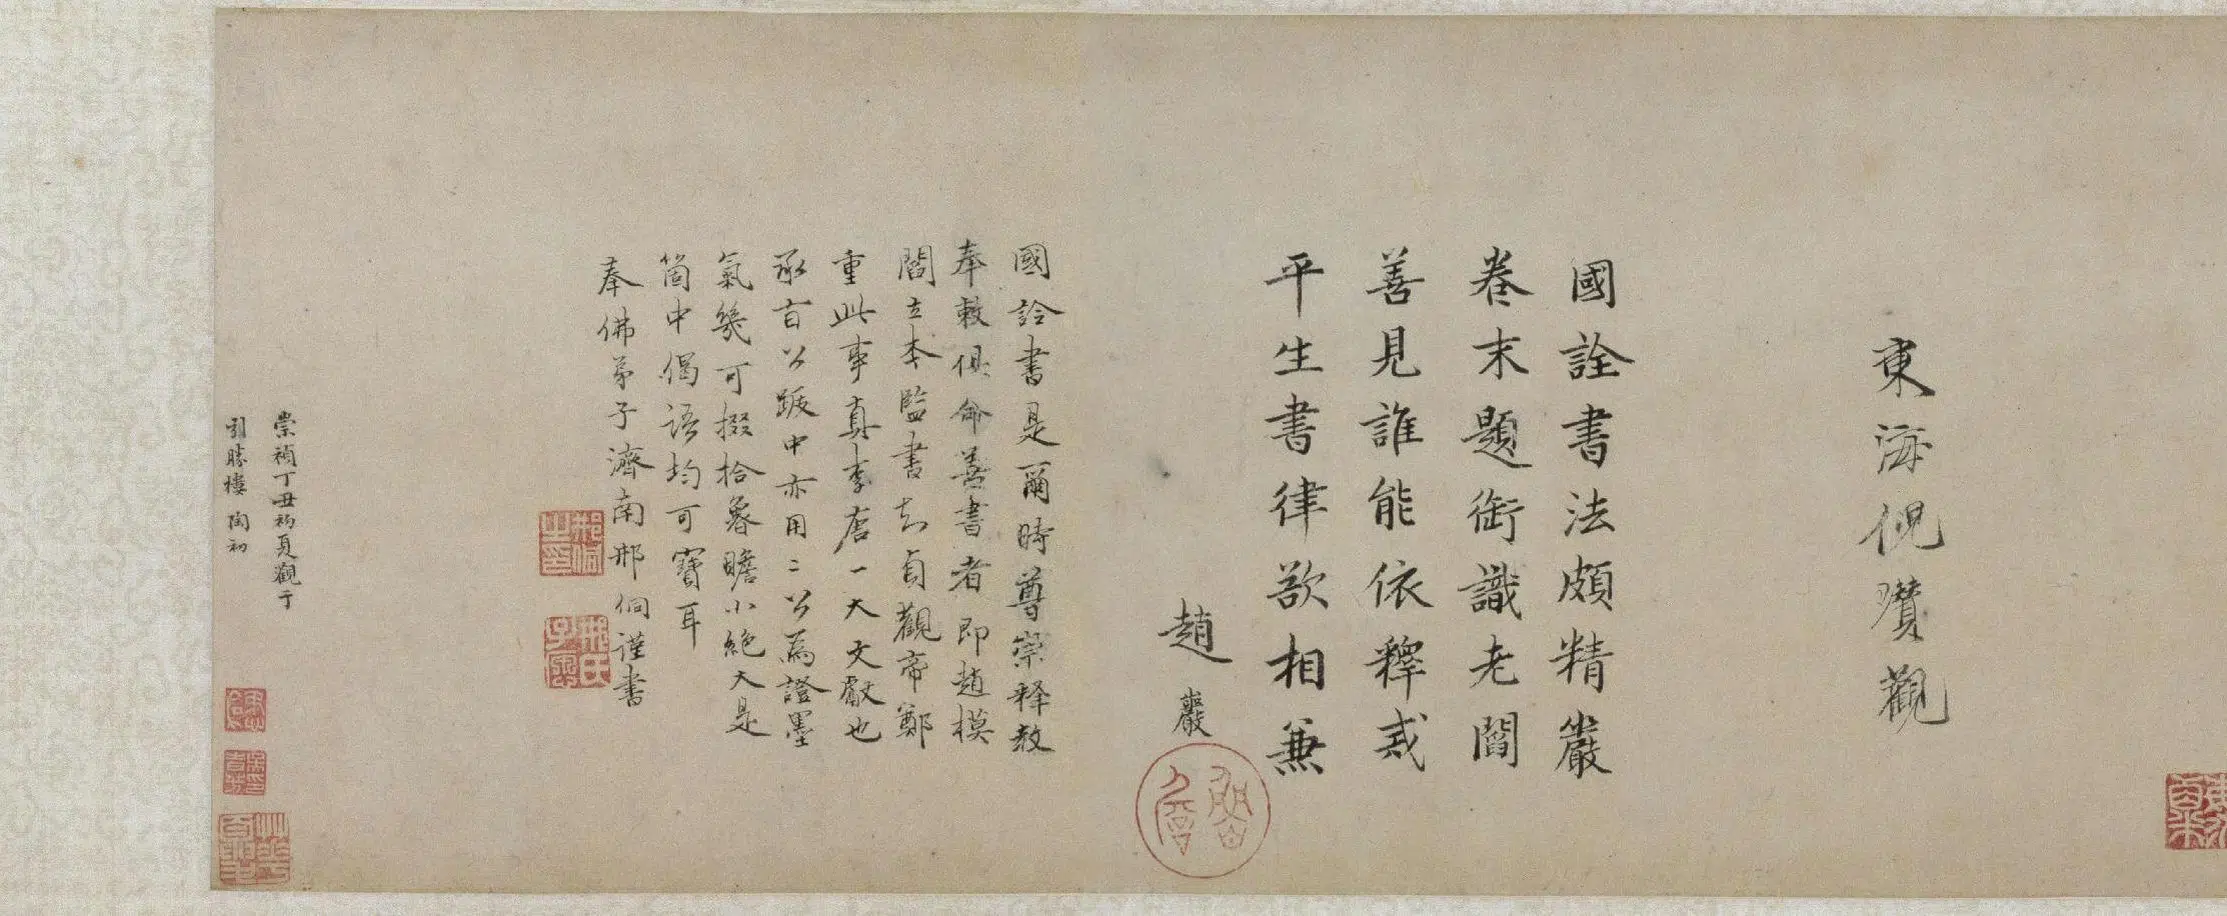 東海倪瓚觀
國詮書法頗精嚴
卷末題銜識老閻
善見誰能依釋戒
平生書律欲相兼
趙巖
國詮書是爾時尊崇释教
奉敕俱命善書者即趙模
閻立本監書知貞觀帝鄭
重此事真李唐一大文獻也
承旨公跋中亦用二公為證墨
氣幾可掇拾魯瞻小絕大是
箇中偈语均可寶耳
奉佛弟子濟南邢侗謹書
崇禎丁丑初夏觀于
引勝樓 陶初
邢侗之印
邢氏子愿